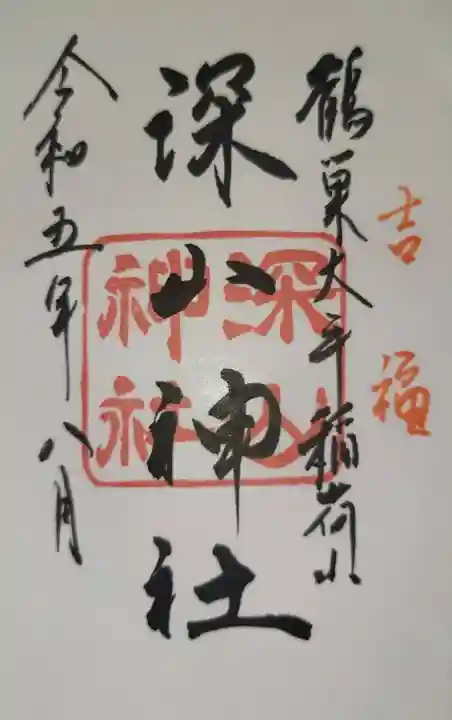 吉 福
鶴巣大平稲荷山
深山神社
深山神社
令和五年八月